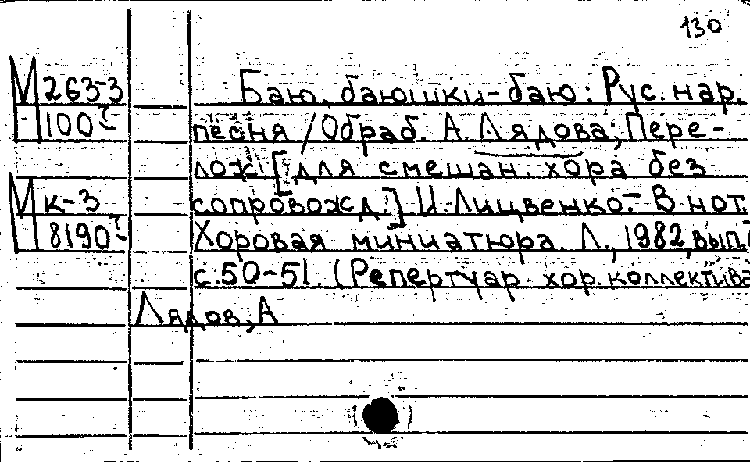 130
М 263-3 Баю, баюшки-баю: Рус. нар.
100 песня / Обраб. А. Лядова; Пере-
лож. [для смешан. хора без
М к-3 сопровожд.] И. Лицвенко. - В нот.
8190 Хоровая миниатюра. Л., 1982, вып.
с. 50-51. (Репертуар хор. коллектива
Лядов, А